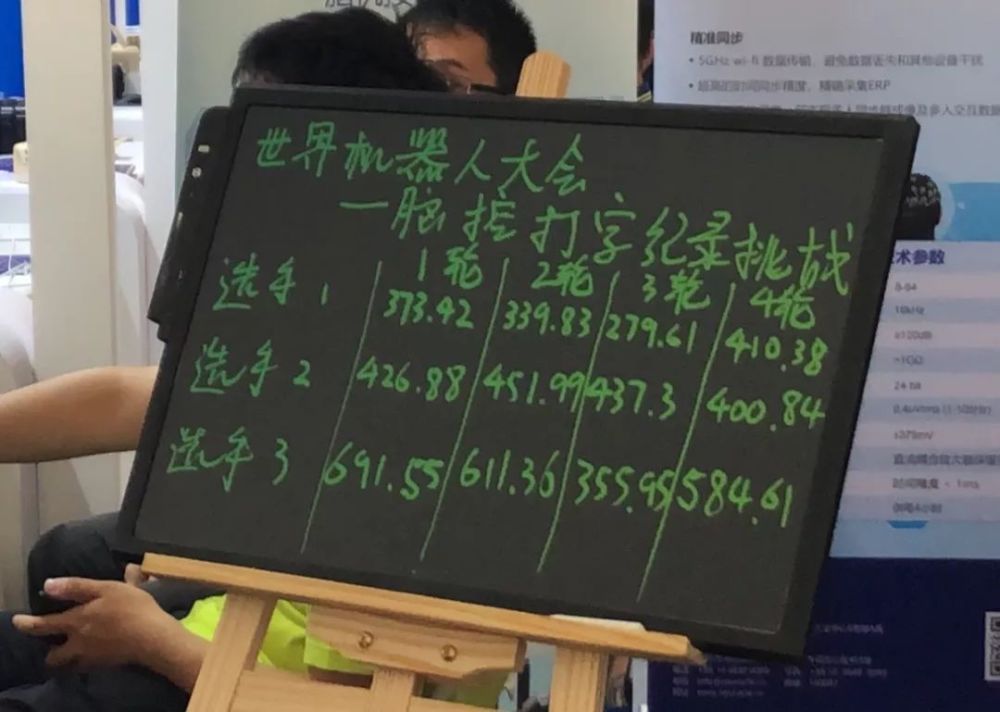 世界机器人大会
一脑控打字纪录挑战
1轮 2轮 3轮 4轮
选手1 373.42 339.83 279.61 410.38
选手2 426.88 451.99 437.3 400.84
选手3 691.55 611.36 355.95 584.61
精准同步
• 5GHz wi-fi 数据传输，避免数据丢失和其他设备干扰
• 超高的时间同步精度，精确采集ERP
术参数
8-64
16kHz
≥120dB
>1GΩ
24 bit
±375mV